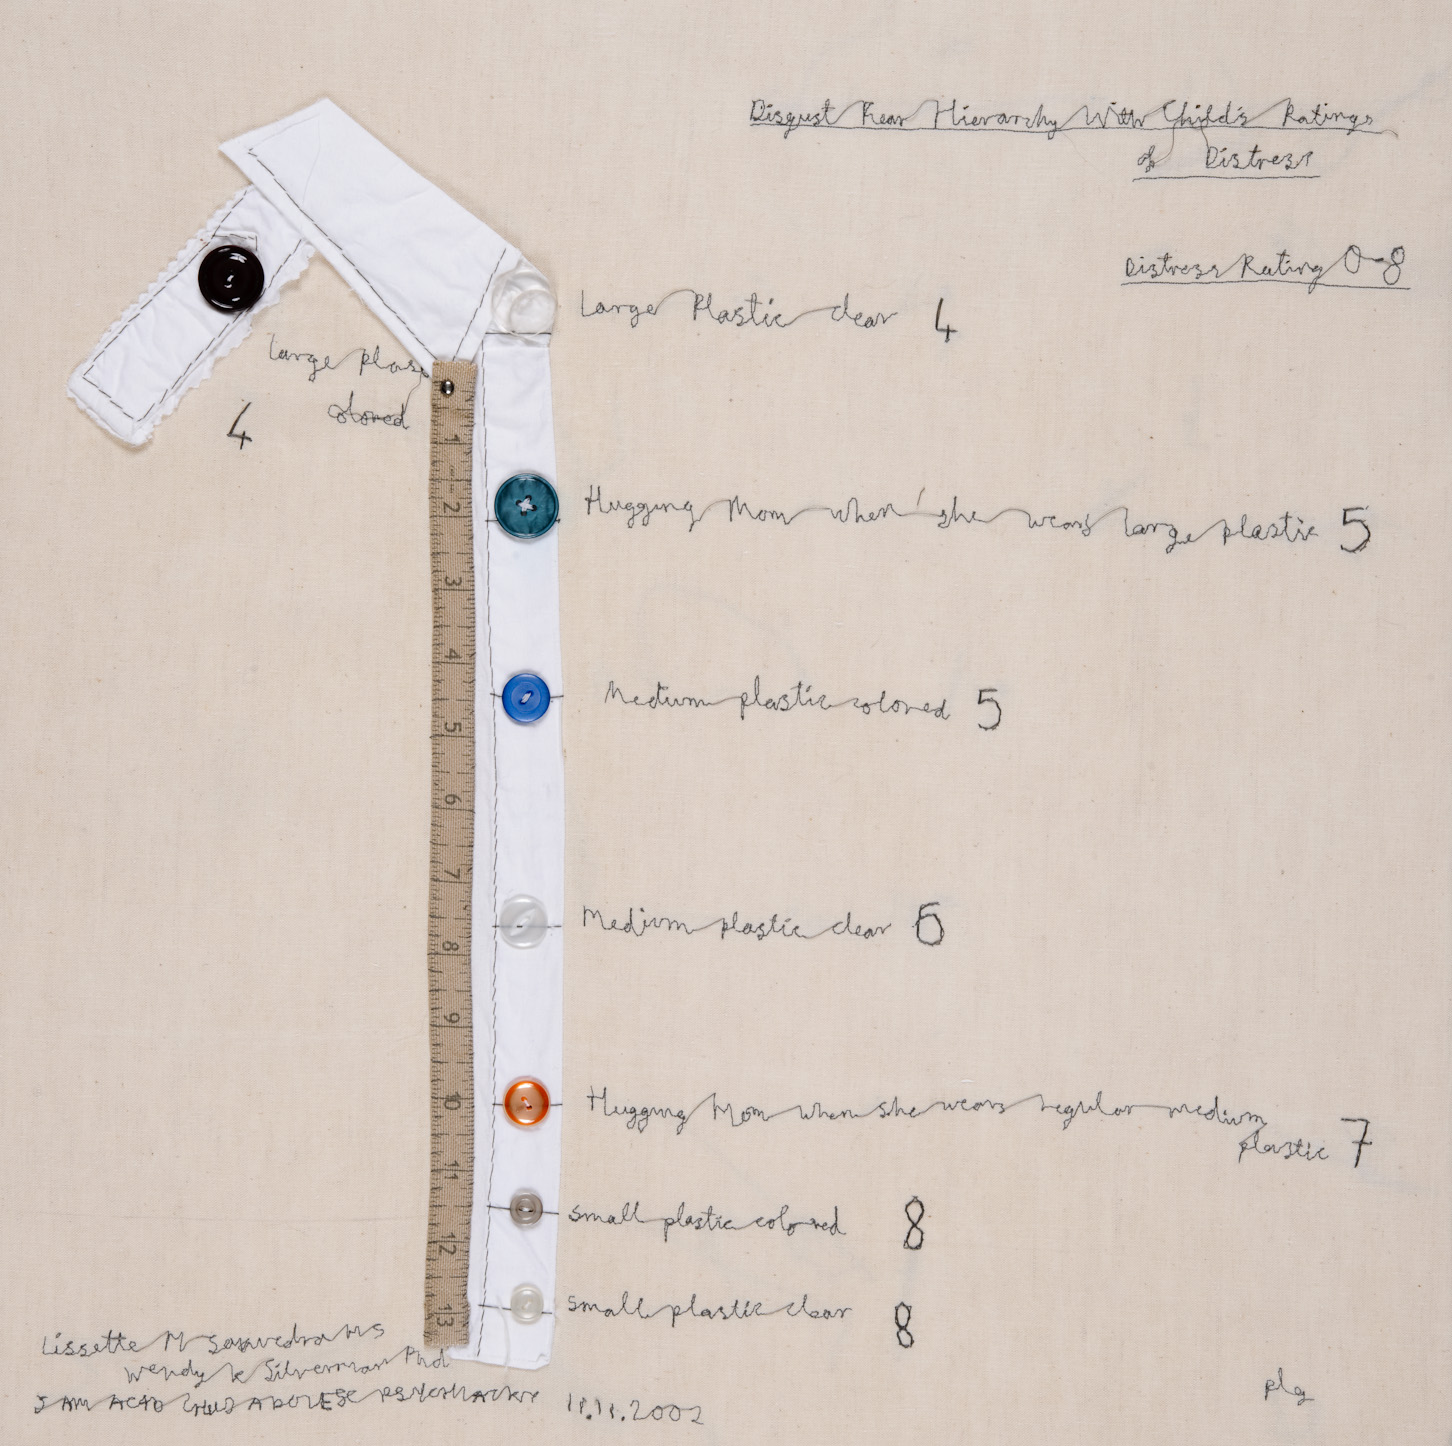 Disgust Fear Hierarchy With Child's Ratings
of Distress
Distress Rating 0-8
Large Plastic clear 4
large plas
colored
4
Hugging Mom when she wears large plastic 5
Medium plastic colored 5
Medium plastic clear 6
Hugging Mom when she wears regular medium
plastic 7
small plastic colored 8
small plastic clear 8
1
2
3
4
5
6
7
8
9
10
11
12
13
Lissette M Saavedra MS
Wendy K Silverman Phd
J AM ACAD CHILD ADOLESC PSYCHIATRY 11.11.2002
plg